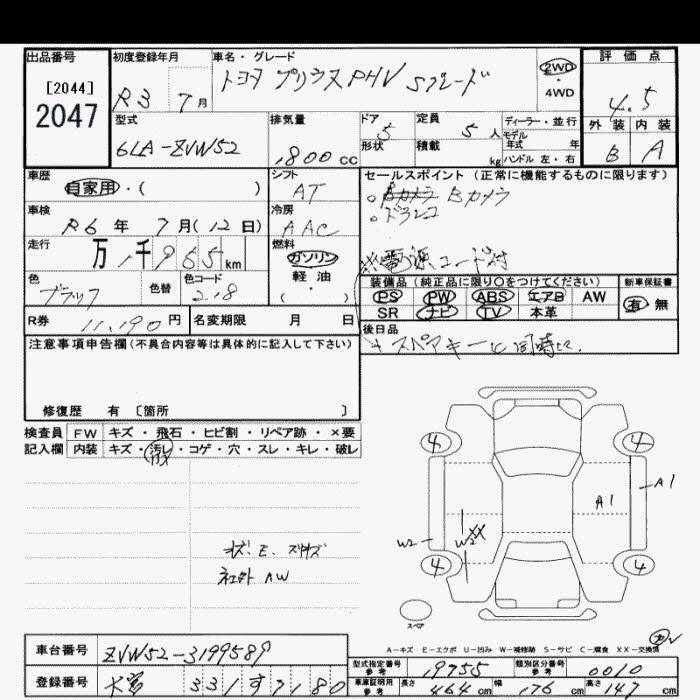 出品番号
[2044]
2047
初度登録年月
R3 7月
車名・グレード
トヨタ プリウスPHV Sグレード
2WD
・4WD
評価点
4.5
外装 内装
B A
型式
6LA-ZVW52
排気量
1800 cc
ドア 5
形状
定員 5 人
積載 kg
ディーラー・並行
モデル
年式 年
ハンドル 左・右
車歴
自家用・( )
シフト
AT
冷房
AAC
車検
R6年 7月(12日)
走行
万 1千965 km
燃料
ガソリン
軽・油
・( )
色
ブラック
色替
色コード
218
R券 11,190円
名変期限 月 日
セールスポイント(正常に機能するものに限ります)
Bカメラ
ドラレコ
電源コード付
装備品(純正品に限り○をつけてください)
PS PW ABS エアB AW
SR ナビ TV 本革
新車保証書
有 無
後日品
スペアキー
注意事項申告欄(不具合内容等は具体的に記入して下さい)
修復歴 有 〔箇所 〕
検査員 FW キズ・飛石・ヒビ割・リペア跡・×要
記入欄 内装 キズ・汚レ・コゲ・穴・スレ・キレ・破レ
4 4
A1
A1
W2
W2 XX
4 4
スペア
A-キズ E-エクボ U-凹み W-補修跡 S-サビ C-腐食 XX-交換済
車台番号 ZVW52-3199589
登録番号
型式指定番号 参考 19755
類別区分番号 参考 0010
車庫証明用 参考 長さ 464 cm 幅 176 cm 高さ 147 cm